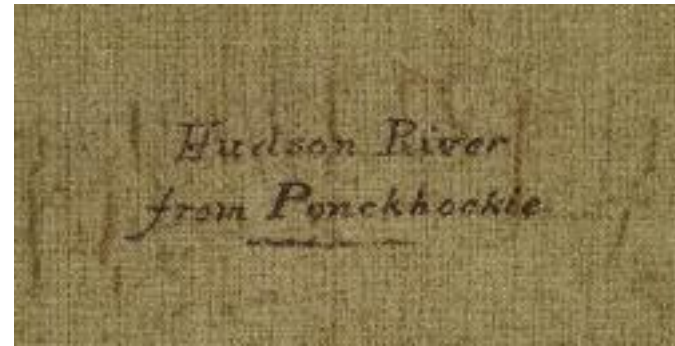 Hudson River
from Ponckhockie